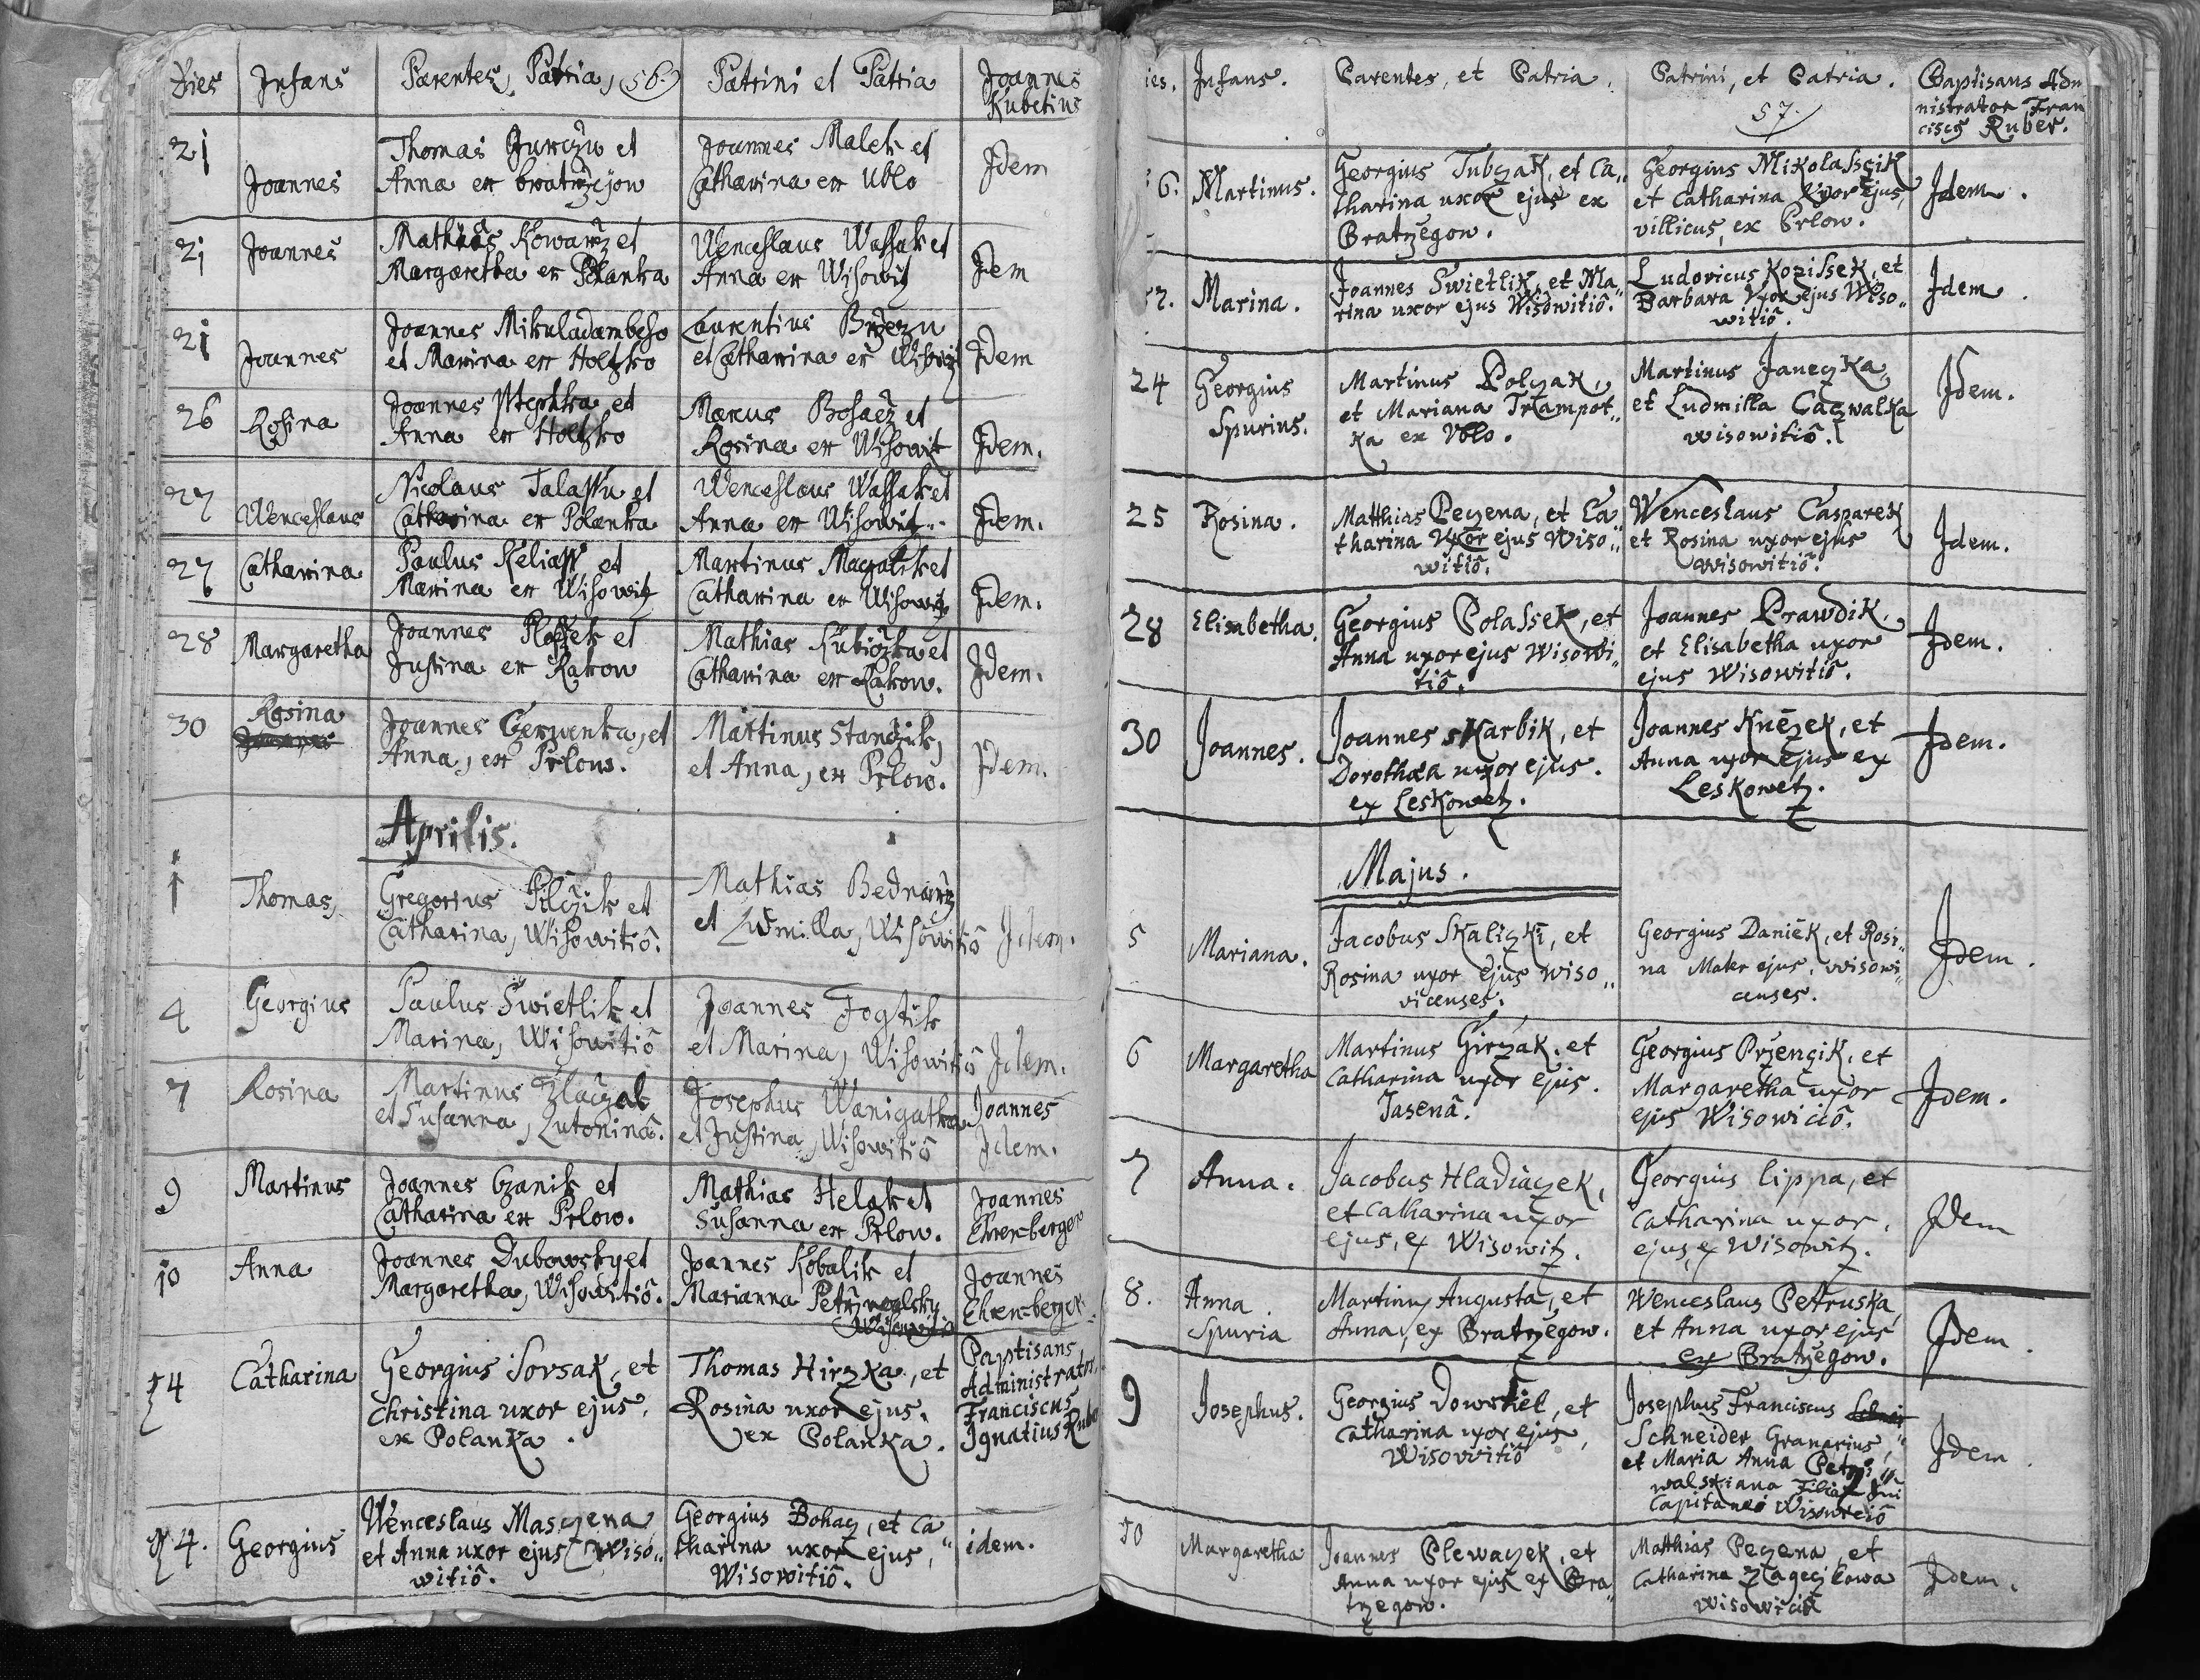 Dies Infans Parentes, Patria, 56. Patrini et Patria Joannes
Kubetius
21 Joannes Thomas Jurczu et Joannes Malek et Idem
Anna ex bratrzejow Catharina ex Ublo
21 Joannes Mathias Kowarz et Wenceslaus Wassak et Idem
Margaretha ex Polanka Anna ex Wisowitz
21 Joannes Joannes Mikuladambeho Laurentius
et Marina ex Holtzko et Catharina ex Idem
26 Rosina Joannes et Marcus Bohacz et
Anna ex Holtzko Rosina ex Wisowit Idem.
27 Wenceslaus Nicolaus et Wenceslaus Wassak et
Catharina ex Polanka Anna ex Wisowitz. Idem.
27 Catharina Paulus et Martinus et
Marina ex Wisowitz Catharina ex Wisowitz Idem.
28 Margaretha Joannes et Mathias et
Justina ex Rakow Catharina ex Rakow. Idem.
30 Rosina Joannes Czerwenka, et Martinus Stanczik, Idem.
Anna, ex Prlow. et Anna, ex Prlow.
Aprilis.
1 Thomas, Gregorius Pilczik et Mathias Bednarz
Catharina, Wisowitiô. et Ludmilla, Wisowitiô Idem.
4 Georgius Paulus Swietlik et Joannes Fogtik
Marina, Wisowitiô et Marina, Wisowitiô Idem.
7 Rosina Martinus et Josephus Wanigatka Joannes
et Susanna, Lutoninâ. et Justina, Wisowitiô Idem.
9 Martinus Joannes Czanik et Mathias Helak et Joannes
Catharina ex Prlow. Susanna ex Prlow. Ehrenberger
10 Anna Joannes Dubowsky et Joannes Kobalik et Joannes
Margaretha, Wisowitiô. Marianna Ehrenberger.
Wisowitiô
14 Catharina Georgius Sovsak, et Thomas Hirzka, et Baptisans
Christina uxor ejus, Rosina uxor ejus, Administrator
ex Polanka. ex Polanka. Franciscus
Ignatius Ruber
14. Georgius Wenceslaus Masczena Georgius Bohacz, et Ca" idem.
et Anna uxor ejus Wiso" tharina uxor ejus,
witiô. Wisowitiô.
ies. Infans. Parentes, et Patria. Patrini, et Patria. Baptisans Admi
57. nistrator Fran
ciscus Ruber.
6. Martinus. Georgius Tubczak, et Ca" Georgius Mikolassik Idem.
tharina uxor ejus ex et Catharina Uxor ejus,
Bratrzegow. villicus, ex Prlow.
Marina. Joannes Swietlik, et Ma" Ludovicus Kozissek, et Idem.
rina uxor ejus Wisowitiô. Barbara Uxor ejus Wiso"
witiô.
24 Georgius Martinus Polczak, Martinus Janeczka, Idem.
Spurius. et Mariana Trampot" et Ludmilla Caczwalka
ka ex Vblo. wisowitiô.
25 Rosina. Matthias Peczena, et Ca" Wenceslaus Casparek Idem.
tharina Uxor ejus Wiso" et Rosina uxor ejus
witiô. wisowitiô.
28 Elisabetha. Georgius Polassek, et Joannes Prawdik, Idem.
Anna uxor ejus Wisowi" et Elisabetha uxor
tiô. ejus Wisowitiô.
30 Joannes. Joannes skarbik, et Joannes Knězek, et Idem.
Dorothæa uxor ejus. Anna uxor ejus ex
ex Leskowetz. Leskowetz.
Majus.
5 Mariana. Jacobus Skaliczki, et Georgius Daniek, et Rosi" Idem.
Rosina uxor ejus wiso" na Mater ejus, wisowi"
vicenses. censes.
6 Margaretha Martinus Girzak, et Georgius Przencik, et Idem.
Catharina uxor ejus. Margaretha uxor
Jasenâ. ejus Wisowiciô.
7 Anna. Jacobus Hladiaczek, Georgius Lippa, et Idem
et Catharina uxor Catharina uxor,
ejus, ex Wisowitz. ejus, ex Wisowitz.
8. Anna. Martinus Augusta, et Wenceslaus Petruska, Idem.
Spuria Anna, ex Bratrzegow. et Anna uxor ejus
ex Bratrzegow.
9 Josephus. Georgius Dowrtiel, et Josephus Franciscus Idem.
Catharina uxor ejus, Schneider Granarius,
Wisowitiô et Maria Anna Petrzi"
walskiana Filia Dni
Capitanei Wisowiciô
10 Margaretha Joannes Plewaczek, et Matthias Peczena, et Idem.
Anna uxor ejus ex Bra" Catharina
trzegow. wisowiciô